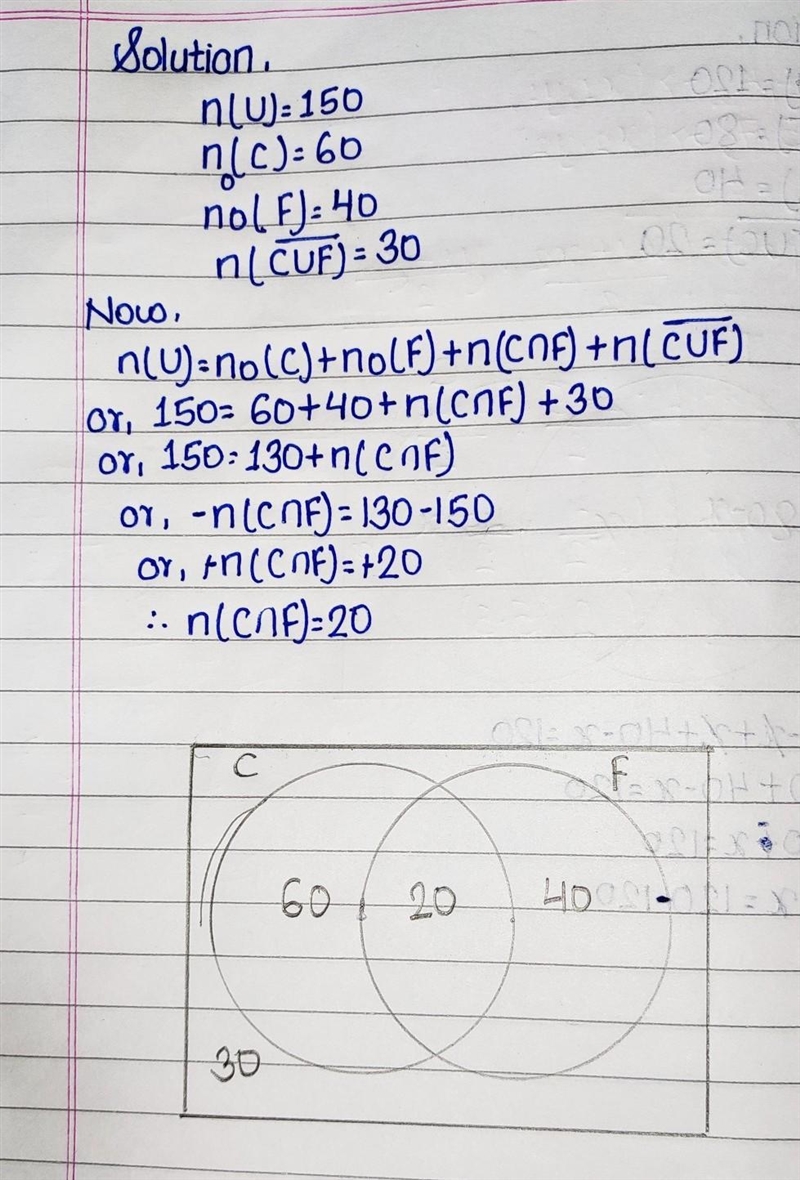 Solution.
n(U)=150
n₀(C)=60
no(F)=40
n(C̅U̅F̅)=30
Now,
n(U)=no(C)+no(F)+n(C∩F)+n(C̅U̅F̅)
or, 150=60+40+n(C∩F)+30
or, 150=130+n(C∩F)
or, -n(C∩F)=130-150
or, +n(C∩F)=+20
∴ n(C∩F)=20
C F
60 20 40
30